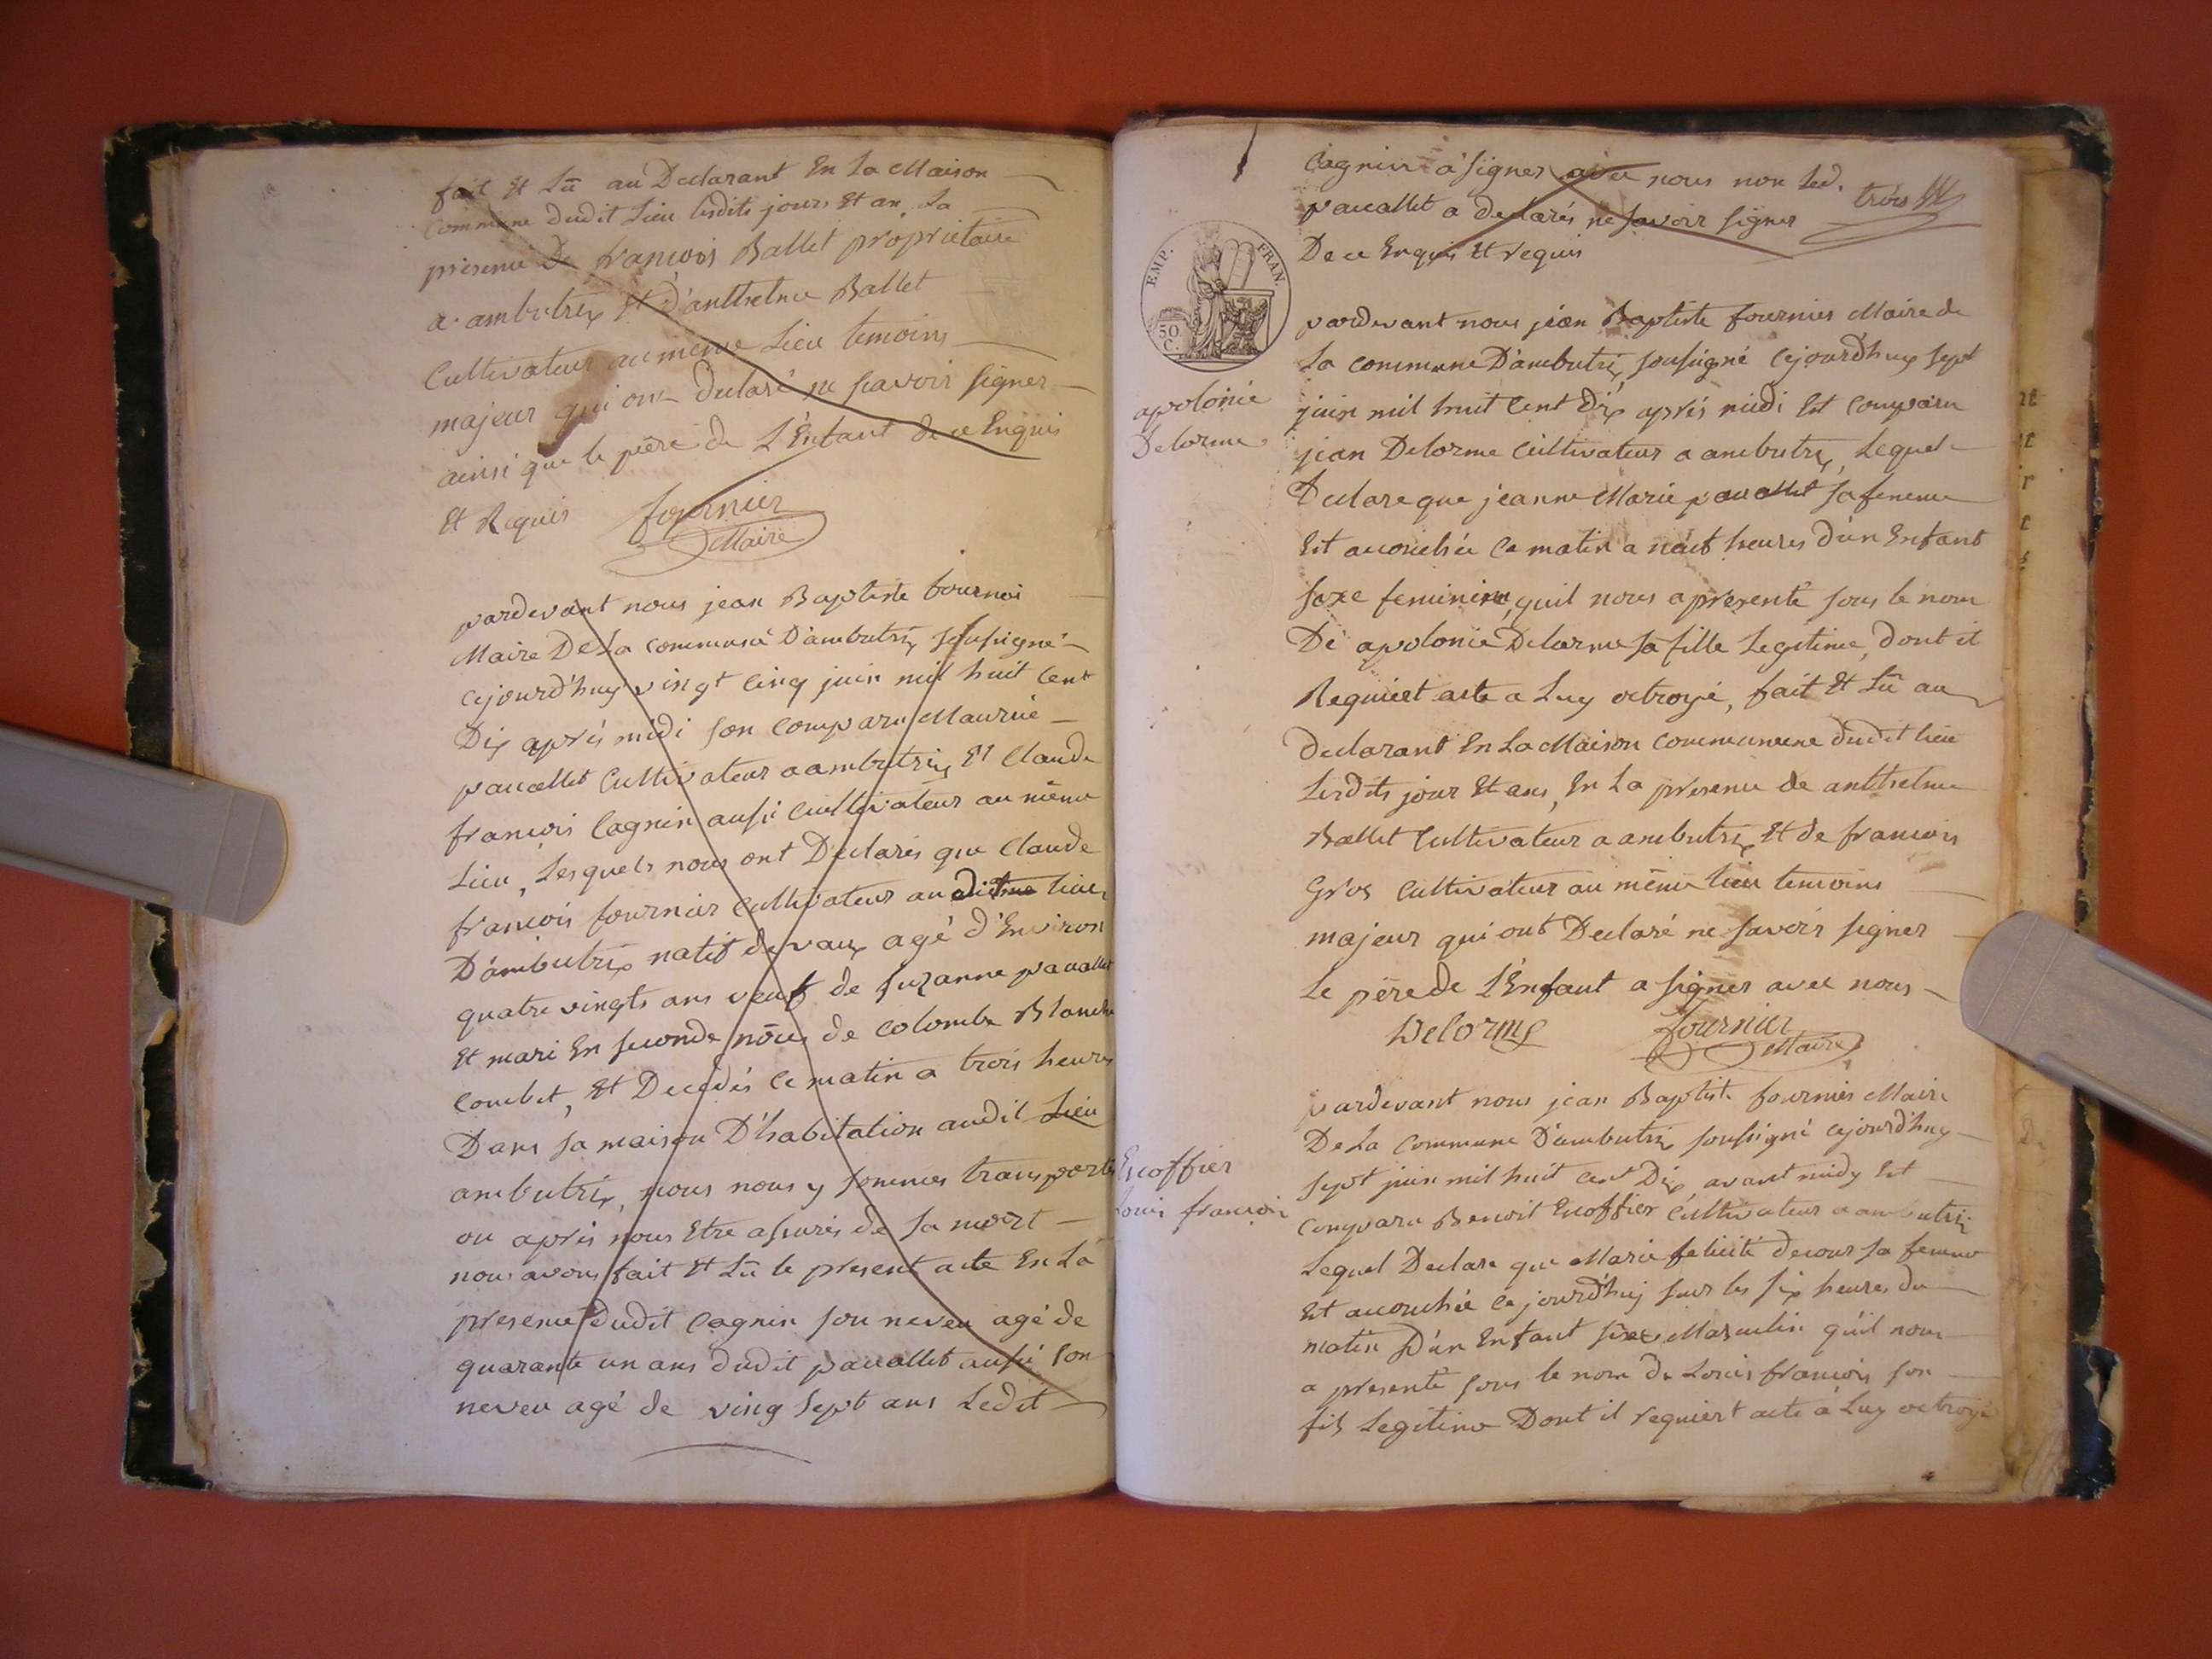 fait Et Lû au Declarant En La Maison
commune dudit Lieu lesdits jours Et an, La
presence De francois Ballet proprietaire
a ambutrix Et d'anthelme Ballet
Cultivateur au même Lieu temoins
majeur qui ont declaré ne scavoir signer
ainsi que le père de L'Enfant de ce Enquis
Et Requis fournier
Maire
pardevant nous jean Baptiste fournier
Maire De La commune D'ambutrix soussigné
cejourd'huy vingt cinq juin mil huit Cent
Dix après midi son comparu Maurice
pauallet Cultivateur a ambutrix, Et Claude
francois Cagnin aussi Cultivateur au même
Lieu, Lesquels nous ont Déclarés que Claude
francois fournier cultivateur audit lieu
D'ambutrix natif de vaux agé d'Environ
quatre vingts ans veuf de suzanne pauallet
Et mari En seconde nôce de colombe Blanche
Combet, Et Decedés ce matin a trois heures
Dans sa maison D'habitation audit Lieu
ambutrix, nous nous y sommes transportés
ou après nous Etre assurés de sa mort
nous avons fait Et Lû le present acte En La
presence dudit Cagnin son neveu agé de
quarante un ans dudit pauallet aussi son
neveu agé de ving sept ans Ledit
Cagnin a signer avec nous non Led.
pauallet a declarés ne savoir signer trois
De ce Enquis Et requis
EMP. FRAN.
50 C.
apolonie
Delorme
pardevant nous jean Baptiste fournier Maire de
La commune D'ambutrix, soussigné cejourd'huy sept
juin mil huit Cent Dix après midi Est comparu
jean Delorme Cultivateur a ambutrix, Lequel
Declare que jeanne Marie pauallet sa femme
Est accouchée ce matin a neuf heures d'un Enfant
sexe feminine, quil nous a presenté sous le nom
De apolonie Delorme sa fille Legitime, dont il
Requiert acte a Luy octroyé, fait Et Lû au
declarant En La Maison communne dudit lieu
Lesdits jour Et ans, En La presence de anthelme
Ballet Cultivateur a ambutrix Et de francois
Gros Cultivateur au même lieu temoins
majeur qui ont Declaré ne savoir signer
Le père de L'Enfant a signer avec nous
Delorme fournier
Maire
Escoffier
Louis francois
pardevant nous jean Baptiste fournier Maire
De La Commune D'ambutrix soussigné cejourd'huy
sept juin mil huit cent Dix avant midy Est
comparu Benoit Escoffier Cultivateur a ambutrix
Lequel Declare que Marie felicité decour sa femme
Est accouchée cejourd'huy sur les six heures du
matin D'un Enfant sexe Masculin qu'il nous
a presenté sous le nom de Louis francois son
fils Legitime Dont il requiert acte a Luy octroyé